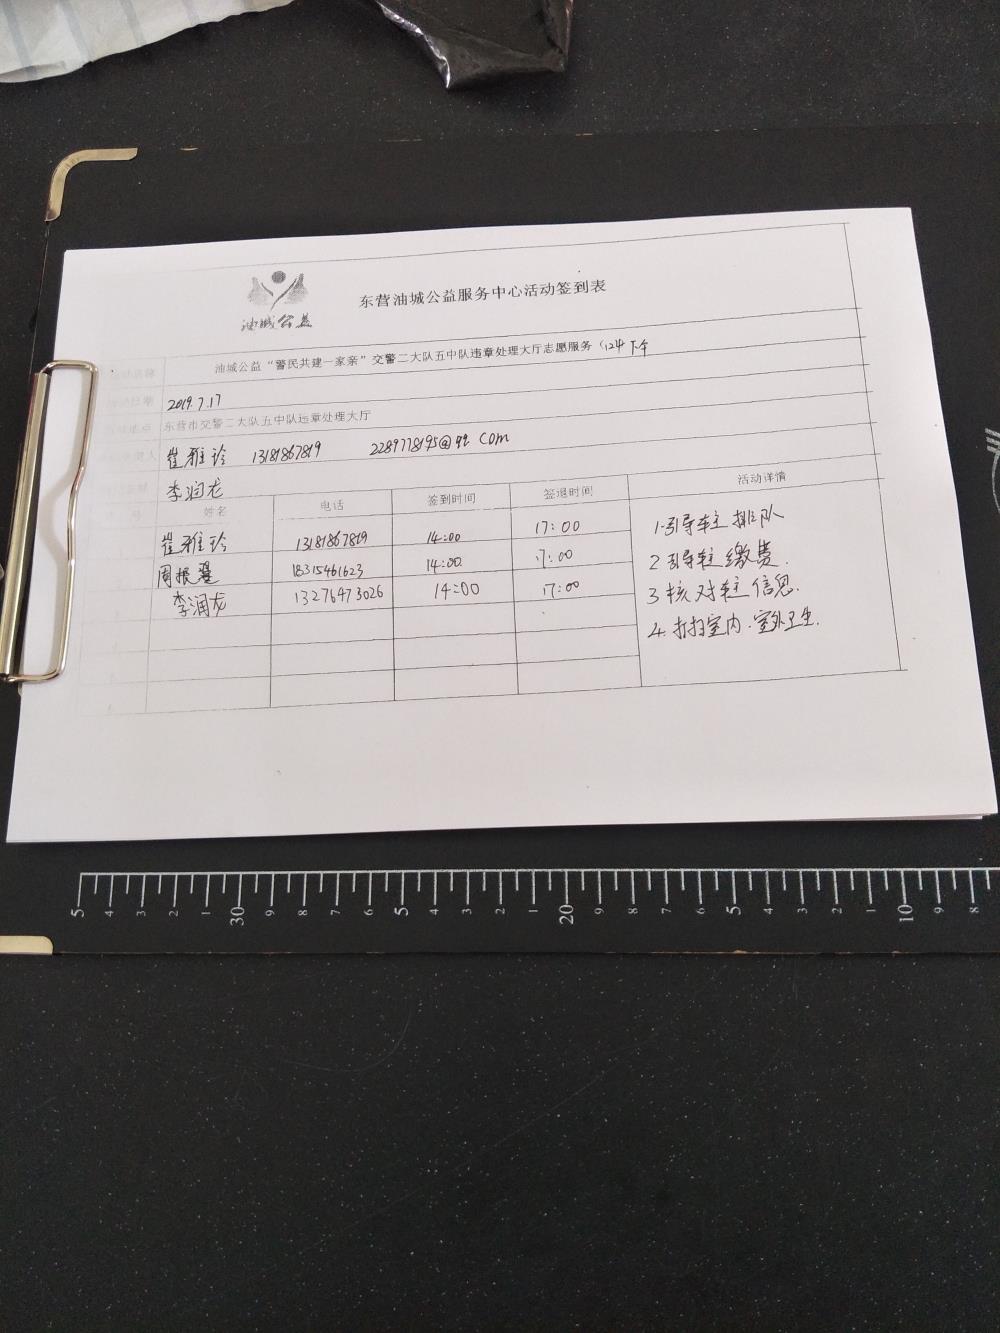 油城公益
东营油城公益服务中心活动签到表
油城公益“警民共建一家亲”交警二大队五中队违章处理大厅志愿服务（124 下午
2019.7.17
东营市交警二大队五中队违章处理大厅
崔雅玲 13181867819 2289778195@qq.com
李润龙
姓名 电话 签到时间 签退时间 活动详情
崔雅玲 13181867819 14:00 17:00
周振 18315461623 14:00 17:00
李润龙 13276473026 14:00 17:00
1.引导车主排队
2 引导车主缴费.
3 核对车主信息.
4. 打扫室内.室外卫生.
5 4 3 2 1 30 9 8 7 6 5 4 3 2 1 20 9 8 7 6 5 4 3 2 1 10 9 8